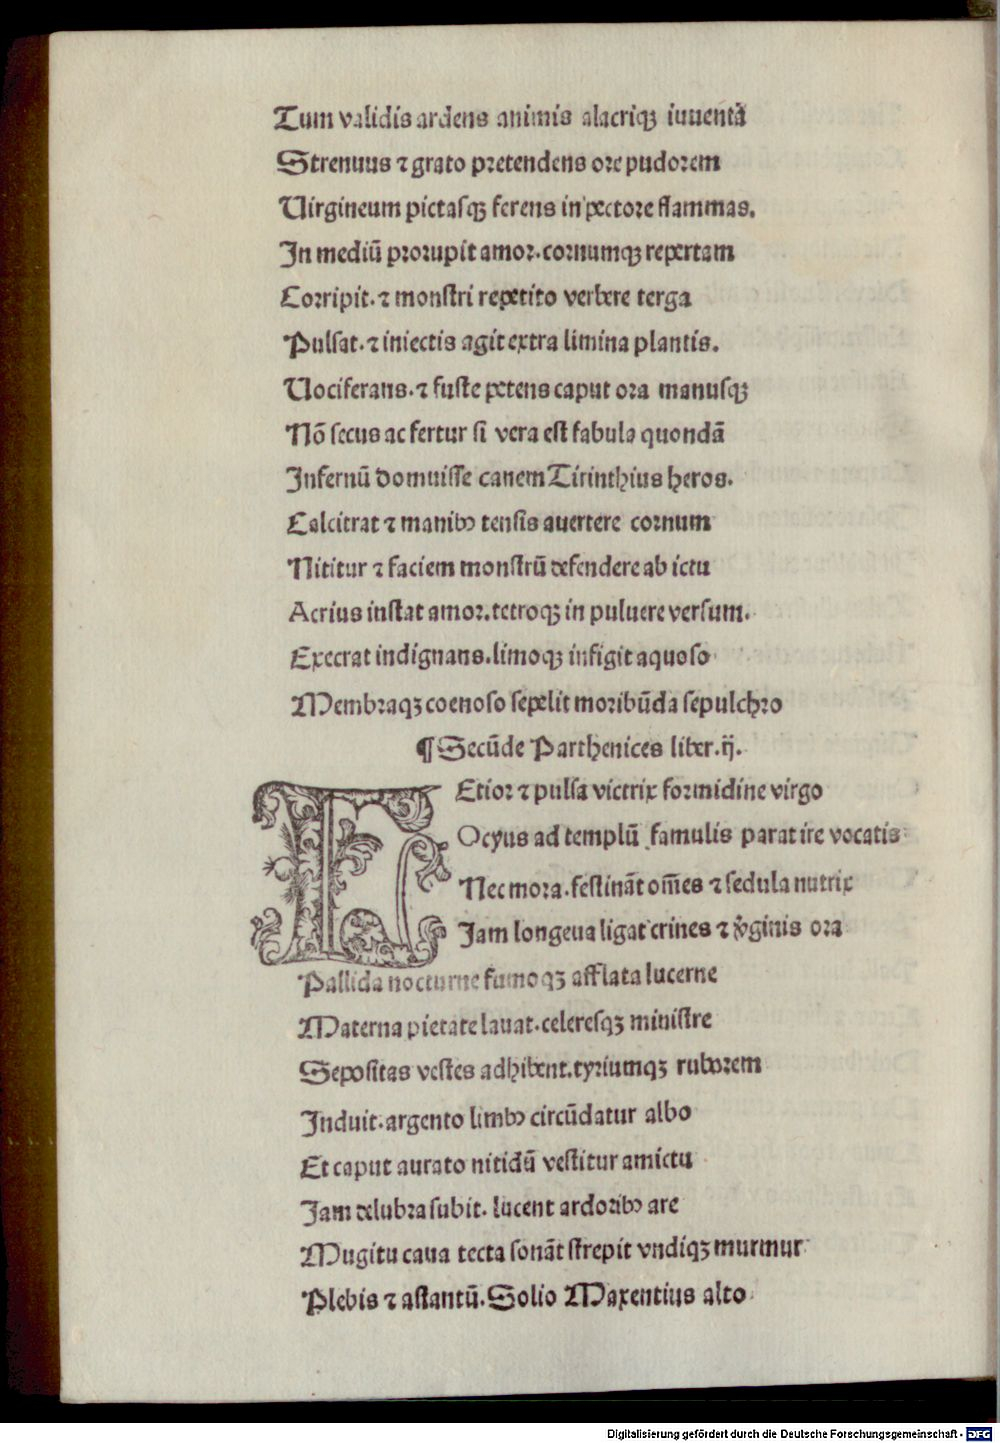 Tum validis ardens animis alacriqꝫ iuuentā
Strenuus ⁊ grato pretendens ore pudorem
Uirgineum pictasqꝫ ferens in pectore flammas.
In mediū prorupit amor. cornumqꝫ repertam
Corripit. ⁊ monstri repetito verbere terga
Pulsat. ⁊ iniectis agit extra limina plantis.
Uociferans. ⁊ fuste petens caput ora manusqꝫ
Nō secus ac fertur si vera est fabula quondā
Infernū domuisse canem Tirinthius heros.
Calcitrat ⁊ manibꝰ tensis auertere cornum
Nititur ⁊ faciem monstrū defendere ab ictu
Acrius instat amor. tetroqꝫ in puluere versum.
Execrat indignans. limoqꝫ infigit aquoso
Membraqꝫ coenoso sepelit moribūda sepulchro
¶ Secūde Parthenices liber. ij.
LEtior ⁊ pulsa victrix formidine virgo
Ocyus ad templū famulis parat ire vocatis
Nec mora. festināt om̄es ⁊ sedula nutrix
Jam longeua ligat crines ⁊ v̇ginis ora
Pallida nocturne fumoqꝫ afflata lucerne
Materna pietate lauat. celeresqꝫ ministre
Sepositas vestes adhibent. tyriumqꝫ ruborem
Induit. argento limbꝰ circūdatur albo
Et caput aurato nitidū vestitur amictu
Jam delubra subit. lucent ardoribꝰ are
Mugitu caua tecta sonāt strepit vndiqꝫ murmur
Plebis ⁊ astantū. Solio Maxentius alto
Digitalisierung gefördert durch die Deutsche Forschungsgemeinschaft - DFG